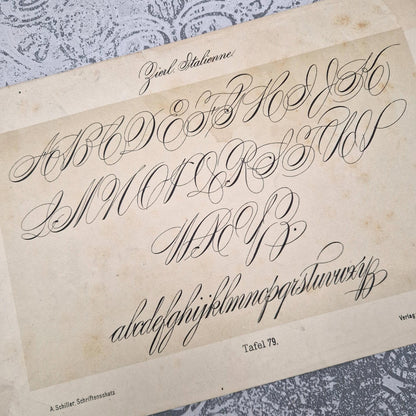 Zierl. Italienne.
A B C D E F G H I J K
L M N O P Q R S T U V
W X Y Z.
abcdefghijklmnopqrstuvwxyz
Tafel 79.
A. Schiller, Schriftenschatz
Verlag